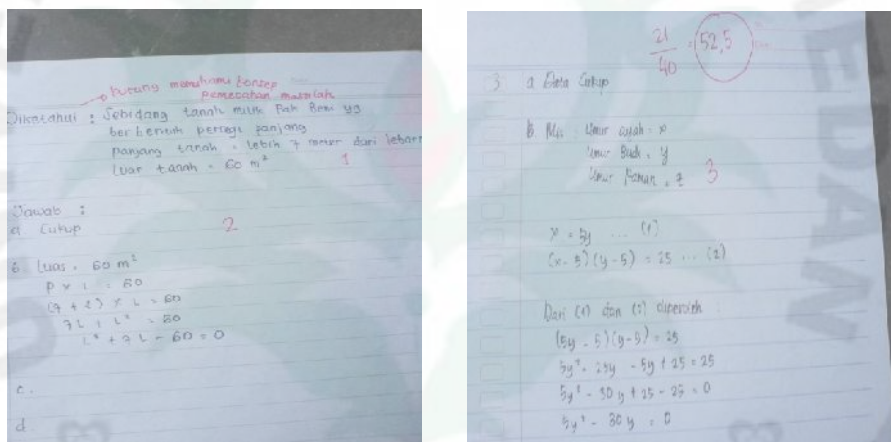 kurang memahami konsep
pemecahan masalah
Diketahui : Sebidang tanah milik Pak Beni yg
berbentuk persegi panjang
panjang tanah = lebih 7 meter dari lebarn
luar tanah = 60 m²
1
Jawab :
a Cukup
2
b Luas = 60 m²
P x L = 60
(7 + L) x L = 60
7L + L² = 60
L² + 7L - 60 = 0
c.
d
21/40 = 52,5
3 a Data Cukup
b Mis : Umur ayah = x
Umur Budi = y
Umur Paman = z
3
x = 5y ... (1)
(x - 5)(y - 5) = 25 ... (2)
Dari (1) dan (2) diperoleh
(5y - 5)(y - 5) = 25
5y² - 25y - 5y + 25 = 25
5y² - 30y + 25 - 25 = 0
5y² - 30y = 0
EDAN